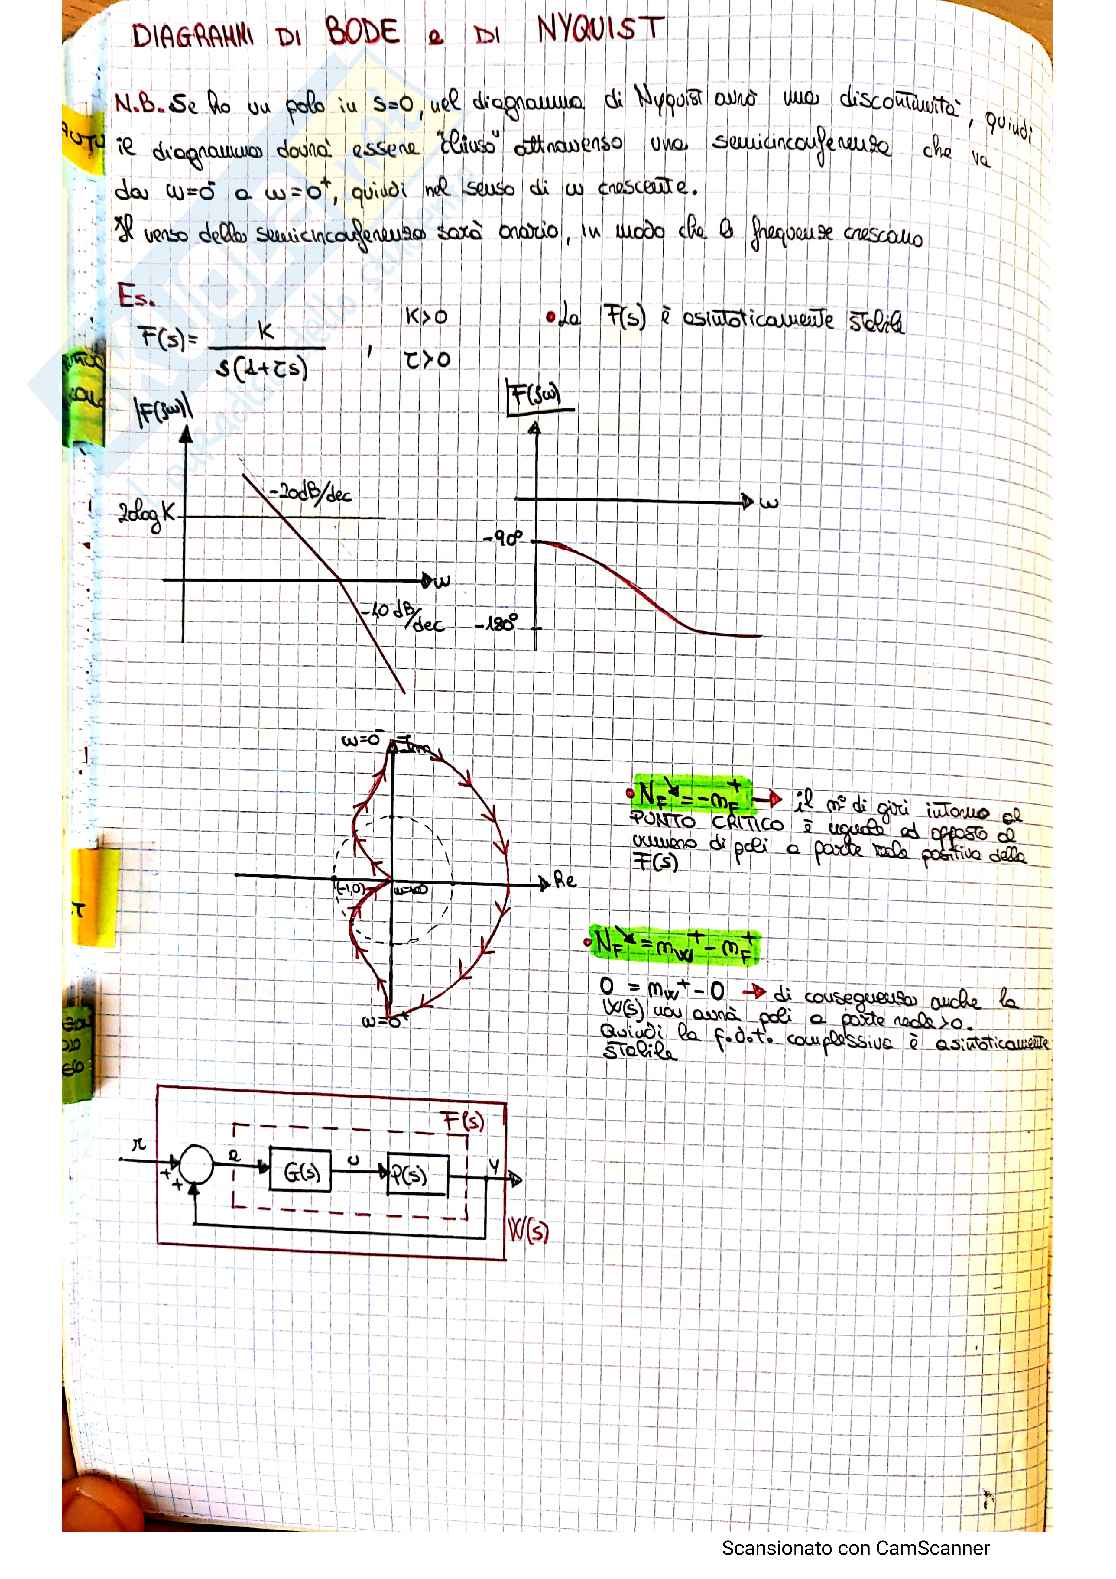 DIAGRAMMI DI BODE e DI NYQUIST
N.B. Se ho un polo in s=0, nel diagramma di Nyquist avrò una discontinuità, quindi
il diagramma dovrà essere "chiuso" attraverso una semicirconferenza che va
da ω=0⁻ a ω=0⁺, quindi nel senso di ω crescente.
Il verso della semicirconferenza sarà orario, in modo che le frequenze crescano
Es.
F(s)= K / s(1+τs) , K>0 τ>0
• La F(s) è asintoticamente stabile
|F(jω)|
F(jω)
-20dB/dec
20logK
ω
-40 dB/dec
ω
-90°
-180°
ω=0⁻
Im
(-1,0)
ω=∞
Re
ω=0⁺
• N_F = -m_F⁺ → il n° di giri intorno al
PUNTO CRITICO è uguale ad opposto al
numero di poli a parte reale positiva della
F(s)
• N_F = m_W⁺ - m_F⁺
0 = m_W⁺ - 0 → di conseguenza anche la
W(s) non avrà poli a parte reale >0.
Quindi la f.d.t. complessiva è asintoticamente
stabile
F(s)
r
+
+
e
G(s)
u
P(s)
y
W(s)
Scansionato con CamScanner